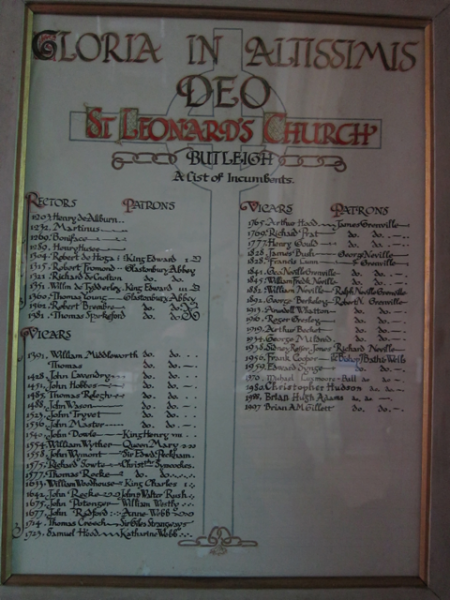 GLORIA IN ALTISSIMIS
DEO
ST LEONARD'S CHURCH
BUTLEIGH
A List of Incumbents.
RECTORS PATRONS
Henry de Allburn
1232. Martinus
Boniface
Henry
1304. Robert de Haga King Edward I
1315. Robert Glastonbury Abbey
Richard do.
1351. de Tydderley King Edward III
1360. Thomas Young Glastonbury Abbey
Robert do.
1381. Thomas Sparkeford do.
VICARS
1391. William Middleworth do. do.
Thomas do. do.
1428. John Lavandry do. do.
1452. John Hobbes do. do.
1485. Thomas do. do.
1488. John Wason do. do.
John Tryvet do. do.
John Master do. do.
1540. John Dowle King Henry
1554. William Wyther Queen Mary
1558. John Wymont Sir Edwd. Peckham.
1575. Richard Christr. Symcockes.
1577. Thomas Rocke do. do.
1633. William Woodhouse King Charles I
1642. John Rocke John & Walter
1675. John William Worthy
1677. John Radford Anne Webb
1714. Thomas Creech Sir Giles Strangways
1723. Samuel Hood Katharine Webb
VICARS PATRONS
1765. Arthur Hood James Grenville
1769. Richard Prat do. do.
1777. Henry Gould do. do.
1828. James Bush George Neville
1828. Francis Grenville
1841. Geo. Neville Grenville do. do.
1845. William Fredk. Neville do. do.
1882. William Neville Ralph Neville Grenville
1892. George Berkeley Robert N. Grenville
1913. Whatton do. do.
Roger do. do.
1919. Arthur Becket do. do.
George do. do.
1938. Sidney James Richard Neville
1956. Frank Cooper The Bishop Bath & Wells
1959. Edward Synge do. do.
1970. Michael Laymore Ball do. do.
Christopher Hudson do. do.
Brian Hugh Adams do. do.
Brian A.M. Gillett do. do.